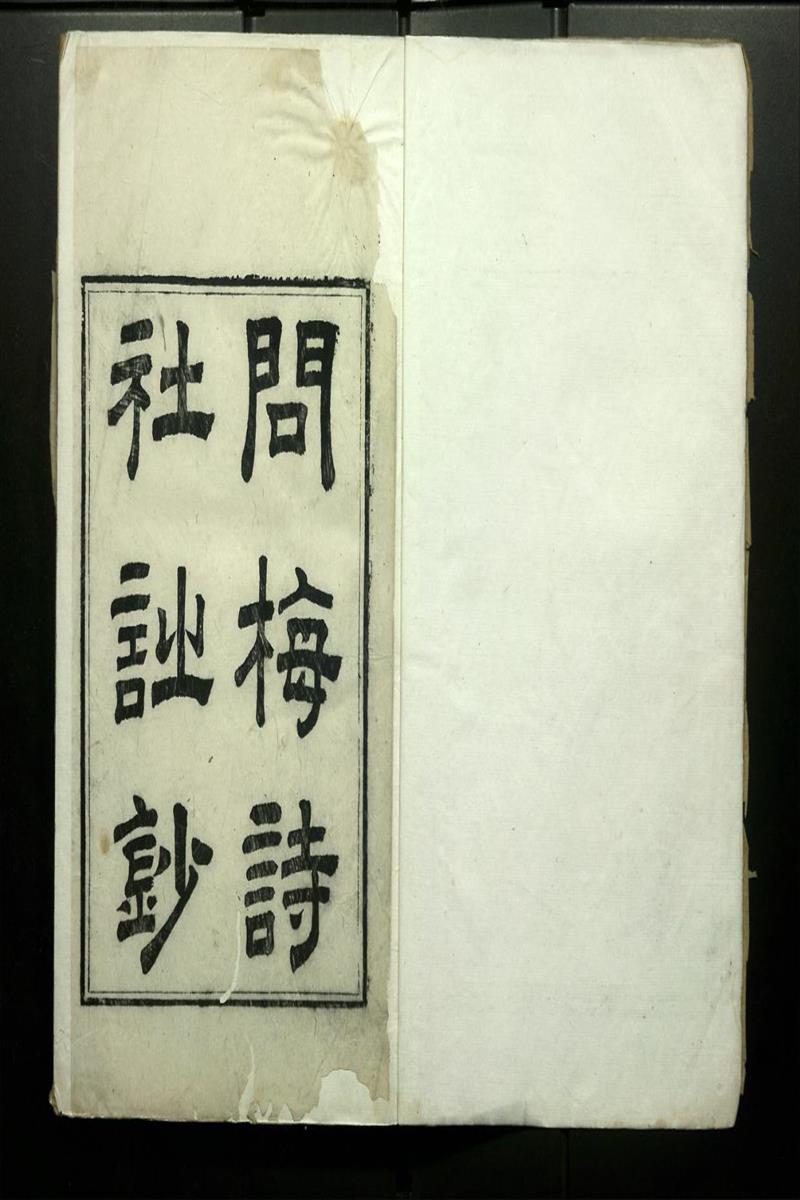 問梅詩
社詩鈔